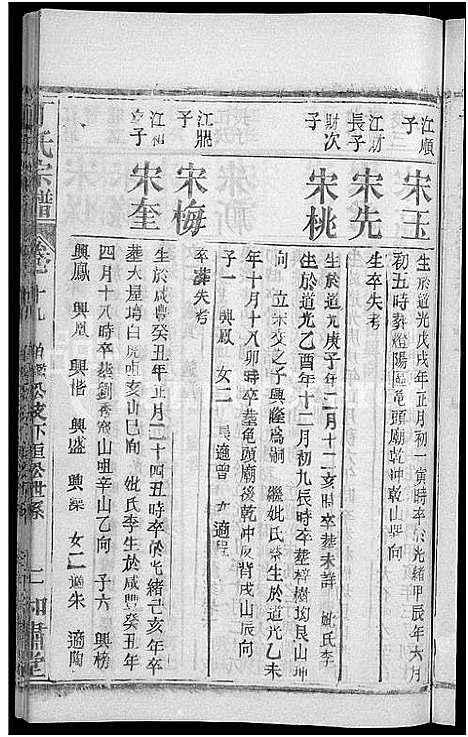 江順
子
宋玉
生於道光戊戌年正月初一寅時卒於光緒甲辰年六月
初五時葬燈陽畾龜頭廟乾冲乾山巽向
江財
長子
宋先
生卒失考
財次
子
宋桃
生於道光庚子年二月十二亥時卒葬未詳 妣氏李
生於道光乙酉年十二月初九辰時卒葬梓樹坳艮山坤
向 立宋交之子興隆為嗣 繼妣氏 生於道光乙未
年十月十八卯時卒葬龜頭廟後乾冲反背戌山辰向
子一 興鳳 女二 長適曾 次適程
江鼎
子
宋梅
卒葬失考
江和
長子
宋奎
生於咸豐癸丑年正月二十四丑時卒於光緒己亥年卒
葬大屋塆白虎咀亥山巳向 妣氏李生於咸豐癸丑年
四月十八時卒葬劉秀寨山咀辛山乙向 子六 興榜
興鳳 興凰 興楷 興盛 興藻 女二 適朱 適陶
氏宗譜
卷 十九
松世系
仁和肅堂